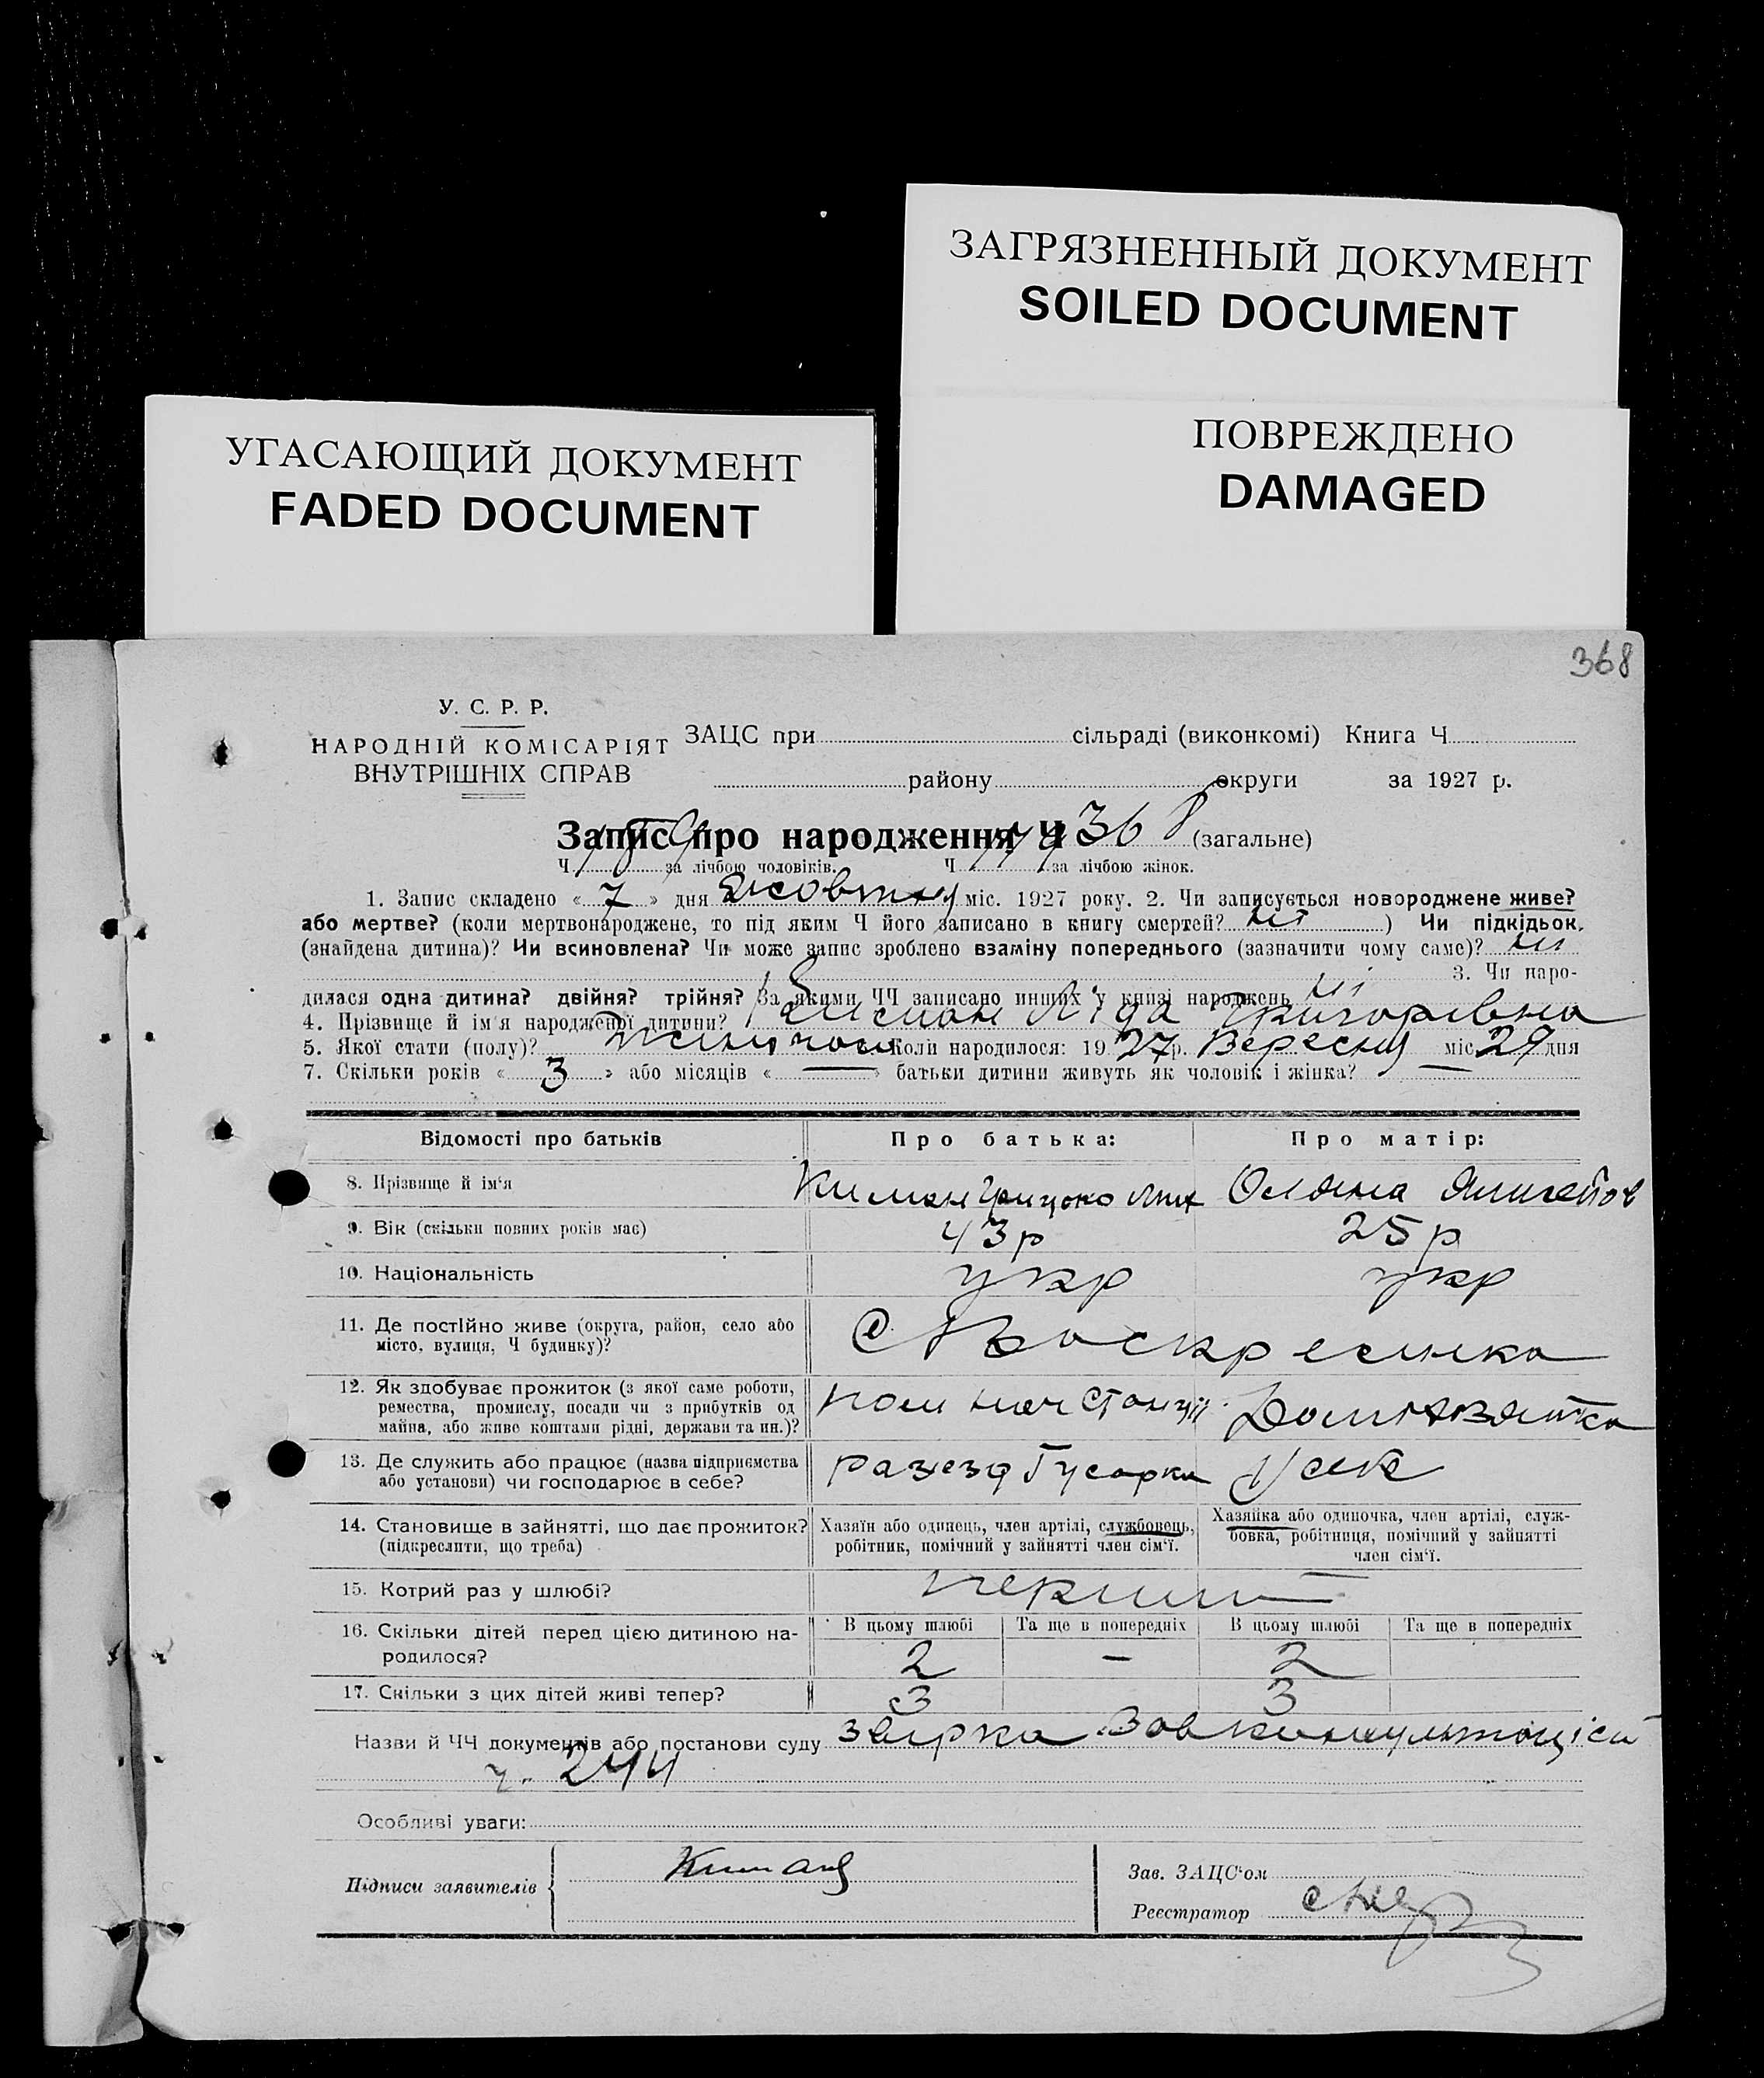 ЗАГРЯЗНЕННЫЙ ДОКУМЕНТ
SOILED DOCUMENT
ПОВРЕЖДЕНО
DAMAGED
УГАСАЮЩИЙ ДОКУМЕНТ
FADED DOCUMENT
368
У. С. Р. Р.
НАРОДНІЙ КОМІСАРІЯТ
ВНУТРІШНІХ СПРАВ
ЗАЦС при сільраді (виконкомі) Книга Ч
району округи за 1927 р.
Запис про народження Ч 368 (загальне)
Ч 189 за лічбою чоловіків. Ч 179 за лічбою жінок.
1. Запис складено « 7 » дня Жовтня міс. 1927 року. 2. Чи записується новороджене живе?
або мертве? (коли мертвонароджене, то під яким Ч його записано в книгу смертей? ні ) Чи підкідьок,
(знайдена дитина)? Чи всиновлена? Чи може запис зроблено взаміну попереднього (зазначити чому саме)? ні
3. Чи наро-
дилася одна дитина? двійня? трійня? За якими ЧЧ записано инших у книзі народжень ні
4. Прізвище й ім'я народженої дитини? Ліда Григорівна
5. Якої стати (полу)? Жіночої Коли народилося: 1927 р. Вересня міс. 29 дня
7. Скільки років « 3 » або місяців « — » батьки дитини живуть як чоловік і жінка? —
Відомості про батьків Про батька: Про матір:
8. Прізвище й ім'я Киман Грицько Мих Оляна
9. Вік (скільки повних років має) 43 р 25 р
10. Національність укр укр
11. Де постійно живе (округа, район, село або
місто, вулиця, Ч будинку)? с Воскресенка
12. Як здобуває прожиток (з якої саме роботи,
ремества, промислу, посади чи з прибутків од
майна, або живе коштами рідні, держави та ин.)? пом нач Станції Домохазяйка
13. Де служить або працює (назва підприємства
або установи) чи господарює в себе? разезд Гусарка
14. Становище в зайнятті, що дає прожиток?
(підкреслити, що треба)
Хазяїн або одинець, член артілі, службовець,
робітник, помічний у зайнятті член сім'ї.
Хазяйка або одиночка, член артілі, служ-
бовка, робітниця, помічний у зайнятті
член сім'ї.
15. Котрий раз у шлюбі? перший
16. Скільки дітей перед цією дитиною на-
родилося?
В цьому шлюбі Та ще в попередніх В цьому шлюбі Та ще в попередніх
2 — 2
17. Скільки з цих дітей живі тепер? 3 3
Назви й ЧЧ документів або постанови суду звірка Зав консультацієй
ч. 244
Особливі уваги:
Підписи заявителів Киман
Зав. ЗАЦС'ом
Реєстратор